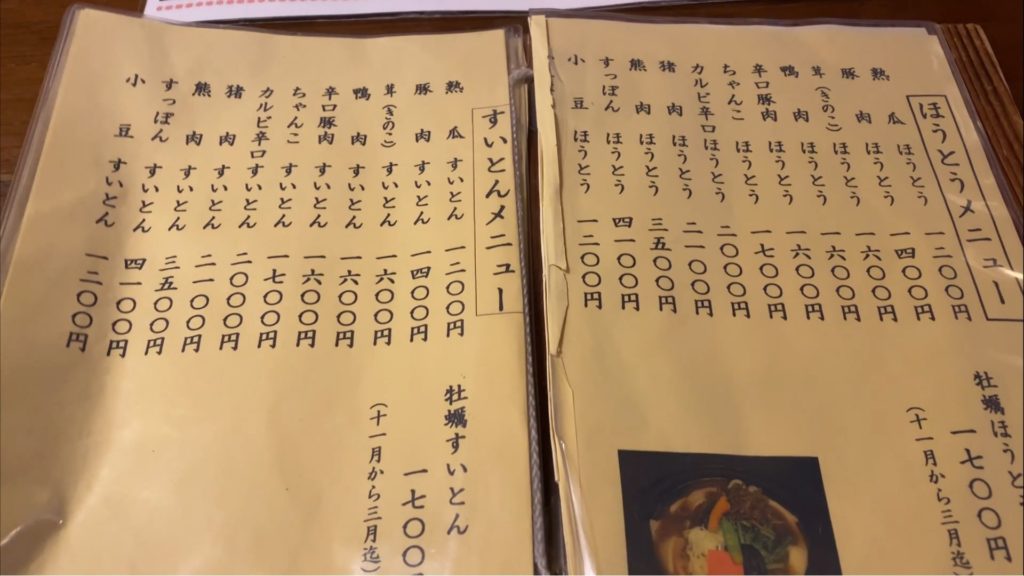 ほうとうメニュー
熟瓜 ほうとう 一二〇〇円
豚肉 ほうとう 一四〇〇円
茸(きのこ) ほうとう 一六〇〇円
鴨肉 ほうとう 一六〇〇円
辛口豚肉 ほうとう 一六〇〇円
ちゃんこ ほうとう 一七〇〇円
カルビ辛口 ほうとう 二〇〇〇円
猪肉 ほうとう 二一〇〇円
熊肉 ほうとう 三五〇〇円
すっぽん ほうとう 四一〇〇円
小豆 ほうとう 一二〇〇円
牡蠣ほうと
一七〇〇円
(十一月から三月迄)
すいとんメニュー
熟瓜 すいとん 一二〇〇円
豚肉 すいとん 一四〇〇円
茸(きのこ) すいとん 一六〇〇円
鴨肉 すいとん 一六〇〇円
辛口豚肉 すいとん 一六〇〇円
ちゃんこ すいとん 一七〇〇円
カルビ辛口 すいとん 二〇〇〇円
猪肉 すいとん 二一〇〇円
熊肉 すいとん 三五〇〇円
すっぽん すいとん 四一〇〇円
小豆 すいとん 一二〇〇円
牡蠣すいとん
一七〇〇
(十一月から三月迄)